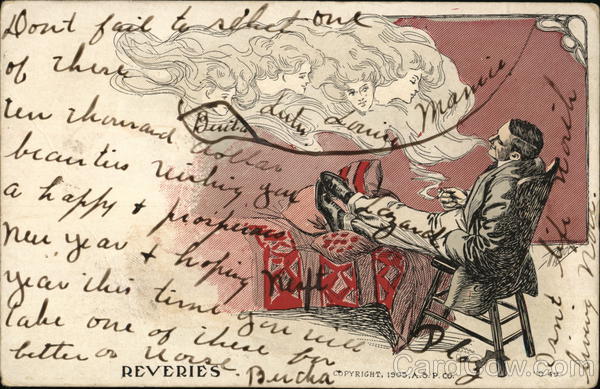 Don't fail to select one
of these
ten thousand dollar
beauties wishing you
a happy + prosperous
New Year + hoping next
year this time you will
take one of these for
better or worse.
Bertha
Bertha
Lulu
Louise
Mamie
Isn't life worth
living now.
REVERIES
COPYRIGHT, 1905, A.S.P. CO.
CardCow.com